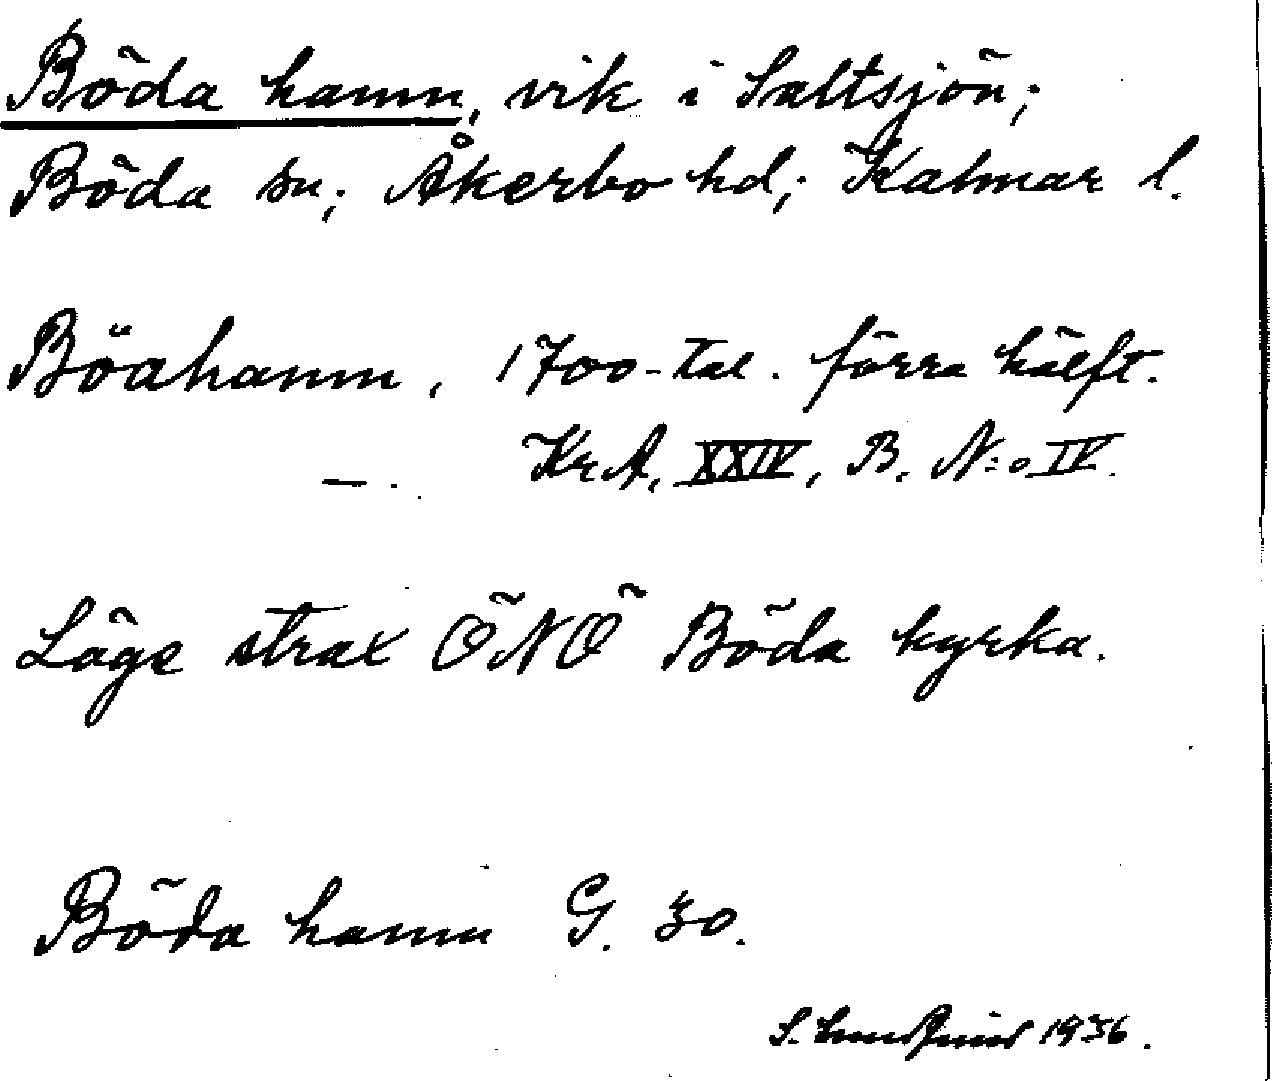 Böda hamn, vik i Saltsjön;
Böda sn; Åkerbo hd; Kalmar l.
Böahamn, 1700-tal. förra hälft.
—. KrA, XXIV, B. N:o IV.
Läge strax ÖNÖ Böda kyrka.
Böda hamn G. 30.
S. 1936.